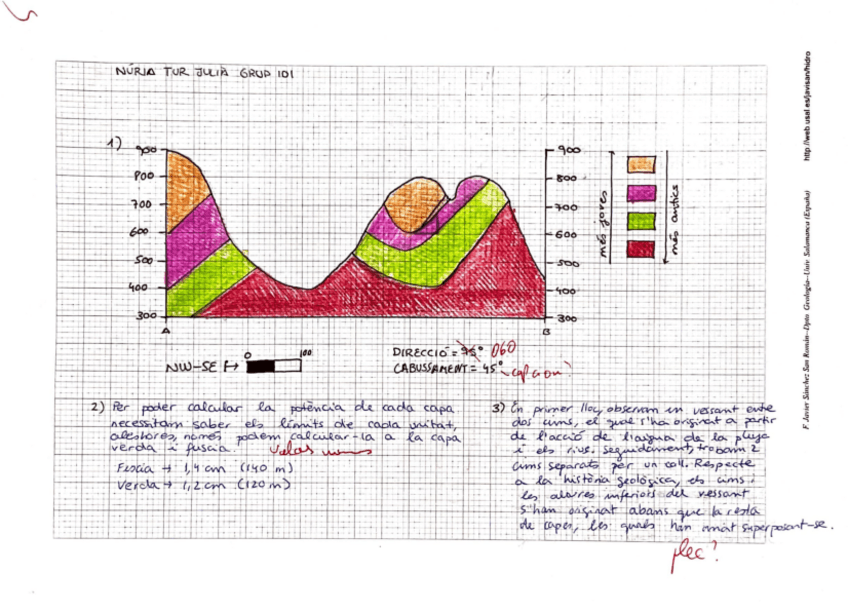 NÚRIA TUR JULIÀ GRUP 101
1)
900
800
700
600
500
400
300
A
900
800
700
600
500
400
300
B
més joves
més antics
NW-SE
0
100
DIRECCIÓ = 75° 060
CABUSSAMENT = 45°
2) Per poder calcular la potència de cada capa
necessitam saber els límits de cada unitat,
aleshores, només podem calcular-la a la capa
verda i fúscia.
Fúscia → 1,4 cm (140 m)
Verda → 1,2 cm (120 m)
3) En primer lloc, observam un vessant entre
dos cims, el qual s'ha originat a partir
de l'acció de l'aigua de la pluja
i els rius. Seguidament, trobam 2
cims separats per un coll. Respecte
a la història geològica, els cims i
les altures inferiors del vessant
s'han originat abans que la resta
de capes, les quals han anat superposant-se.
plec?
http://web.usal.es/javisan/hidro
F. Javier Sánchez San Román--Dpto. Geología--Univ. Salamanca (España)